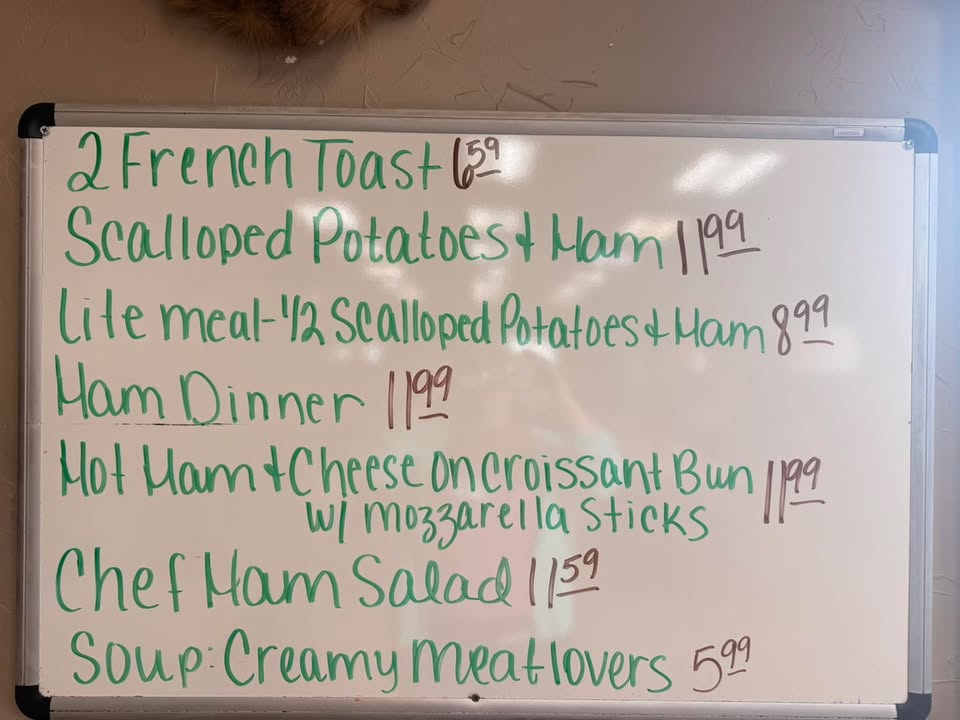 2 French Toast 6.59
Scalloped Potatoes & Ham 11.99
Lite meal - 1/2 Scalloped Potatoes & Ham 8.99
Ham Dinner 11.99
Hot Ham & Cheese on Croissant Bun 11.99
w/ mozzarella sticks
Chef Ham Salad 11.59
Soup: Creamy Meatlovers 5.99